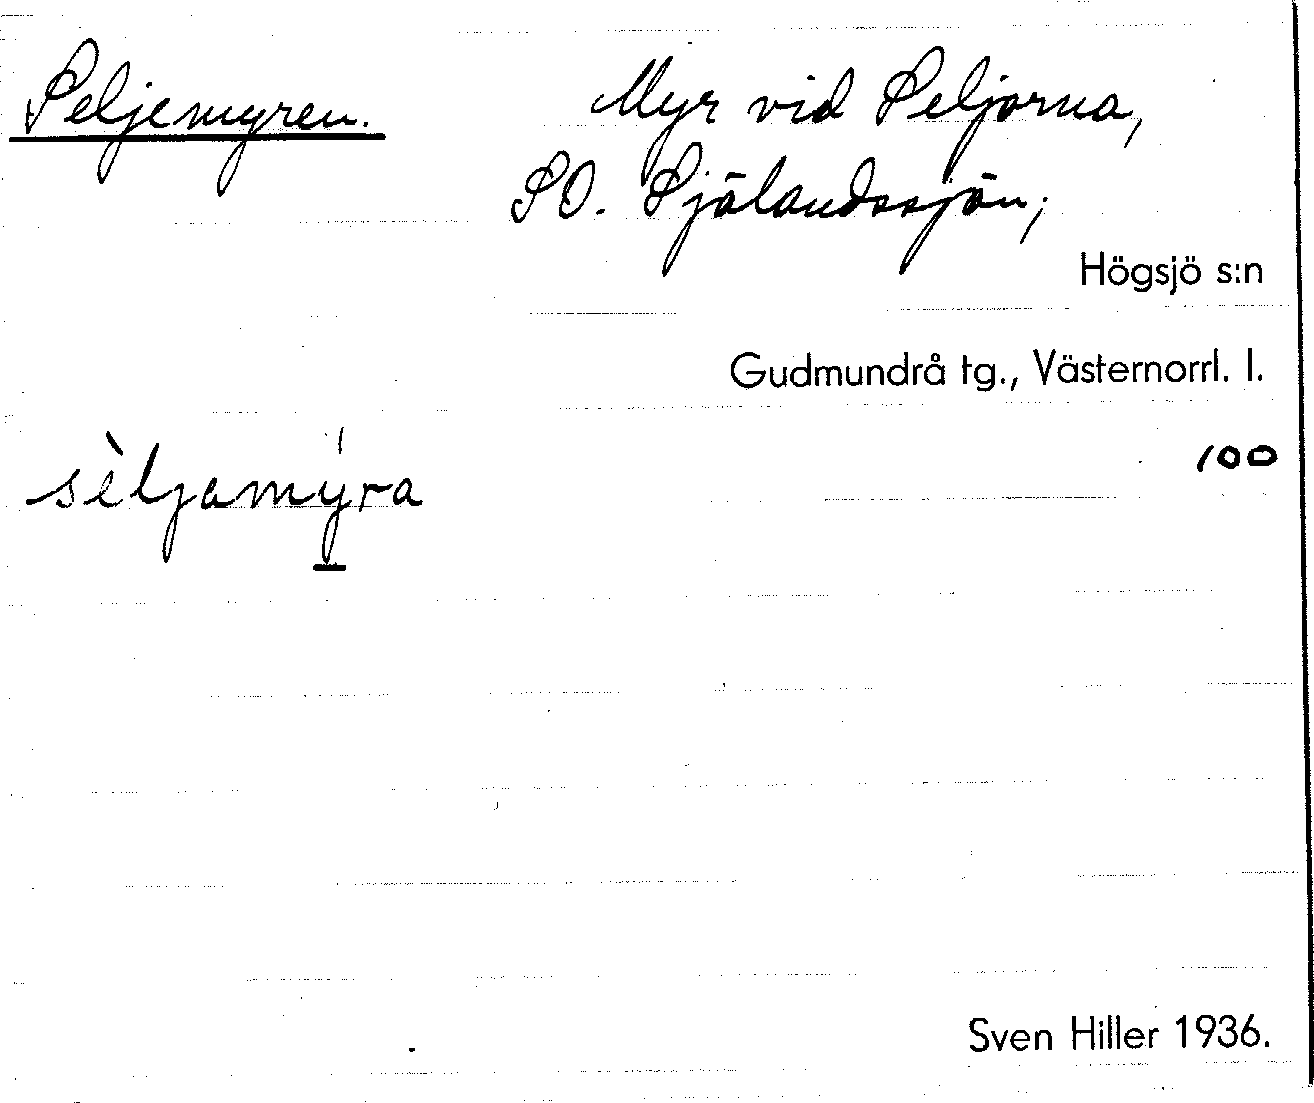 Seljemyren.
Myr vid Seljorna,
SO. Själandssjön;
Högsjö s:n
Gudmundrå tg., Västernorrl. l.
100
sèljamýra
Sven Hiller 1936.